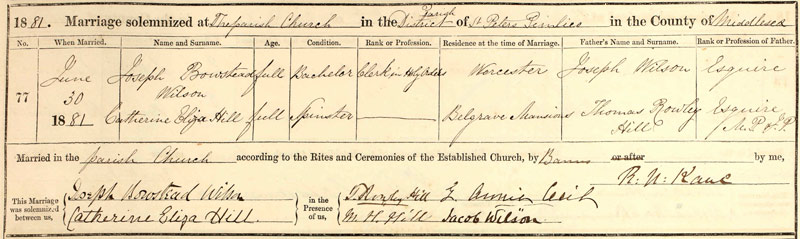 1881. Marriage solemnized at The parish Church in the District Parish of St Peters Pimlico in the County of Middlesex
No. When Married. Name and Surname. Age. Condition. Rank or Profession. Residence at the time of Marriage. Father's Name and Surname. Rank or Profession of Father.
77 June 30 1881 Joseph Bowstead Wilson full Bachelor Clerk in Holy Orders Worcester Joseph Wilson Esquire
Catherine Eliza Hill full Spinster Belgrave Mansions Thomas Rowley Hill Esquire M.P. & J.P.
Married in the parish Church according to the Rites and Ceremonies of the Established Church, by Banns or after by me,
This Marriage was solemnized between us, Joseph Bowstead Wilson Catherine Eliza Hill in the Presence of us, T. Rowley Hill M. H. Hill Jacob Wilson